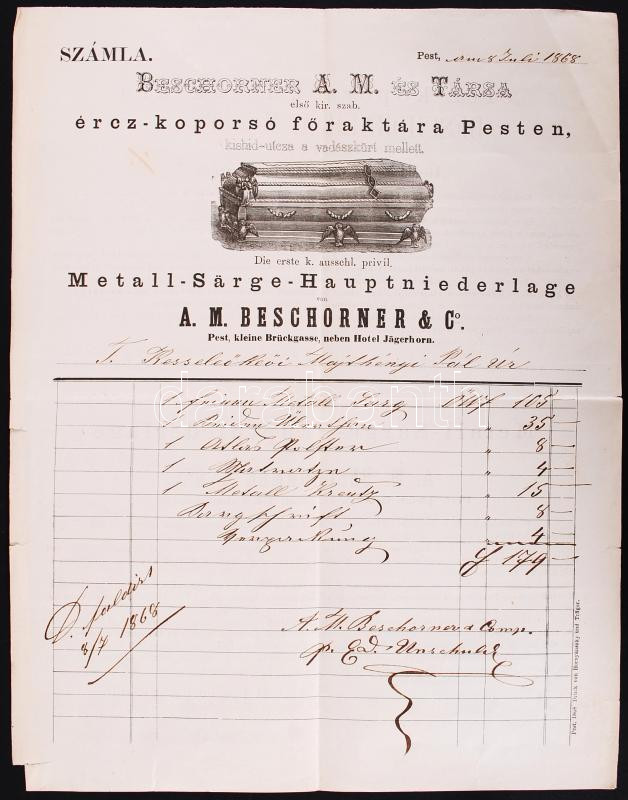 SZÁMLA.
Pest, am 8 Juli 1868
BESCHORNER A. M. ÉS TÁRSA
első kir. szab.
ércz-koporsó főraktára Pesten,
kishid-utcza a vadászkürt mellett.
Die erste k. ausschl. privil.
Metall-Särge-Hauptniederlage
von
A. M. BESCHORNER & Co.
Pest, kleine Brückgasse, neben Hotel Jägerhorn.
T. Kesseleőkeői Majthényi Pál Úr
1 Metall Sarg ÖWf 105 —
1 " 35 —
1 Atlas Polster " 8 —
1 Matratze " 4 —
1 Metall Kreutz " 15 —
Sargschrift " 8 —
Verpackung " 4 —
f 179 —
8/7 1868
A. M. Beschorner & Comp.
p. Ed. Unschuld
Pest, 1868. Druck von Hornyánszky und Träger.
darabanth